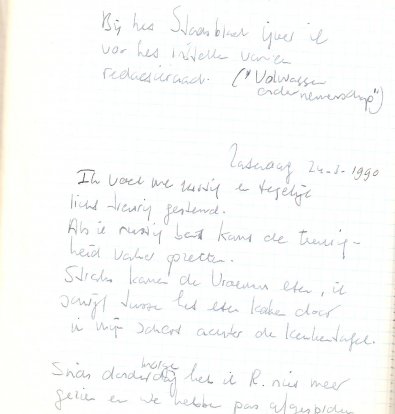 Bij het Stadsblad ijver ik
voor het instellen van een
redactieraad. ("Volwassen
ondernemerschap")
Zaterdag 24-3-1990
Ik voel me rustig en tegelijk
licht treurig gestemd.
Als ik rustig ben kan de treurig-
heid vanzelf opzetten.
Straks komen de Vroemen eten, ik
schrijf tussen het eten koken door
in mijn schort achter de keukentafel.
Sinds donderdag heb ik R. niet meer
gezien en we hebben pas afgesproken